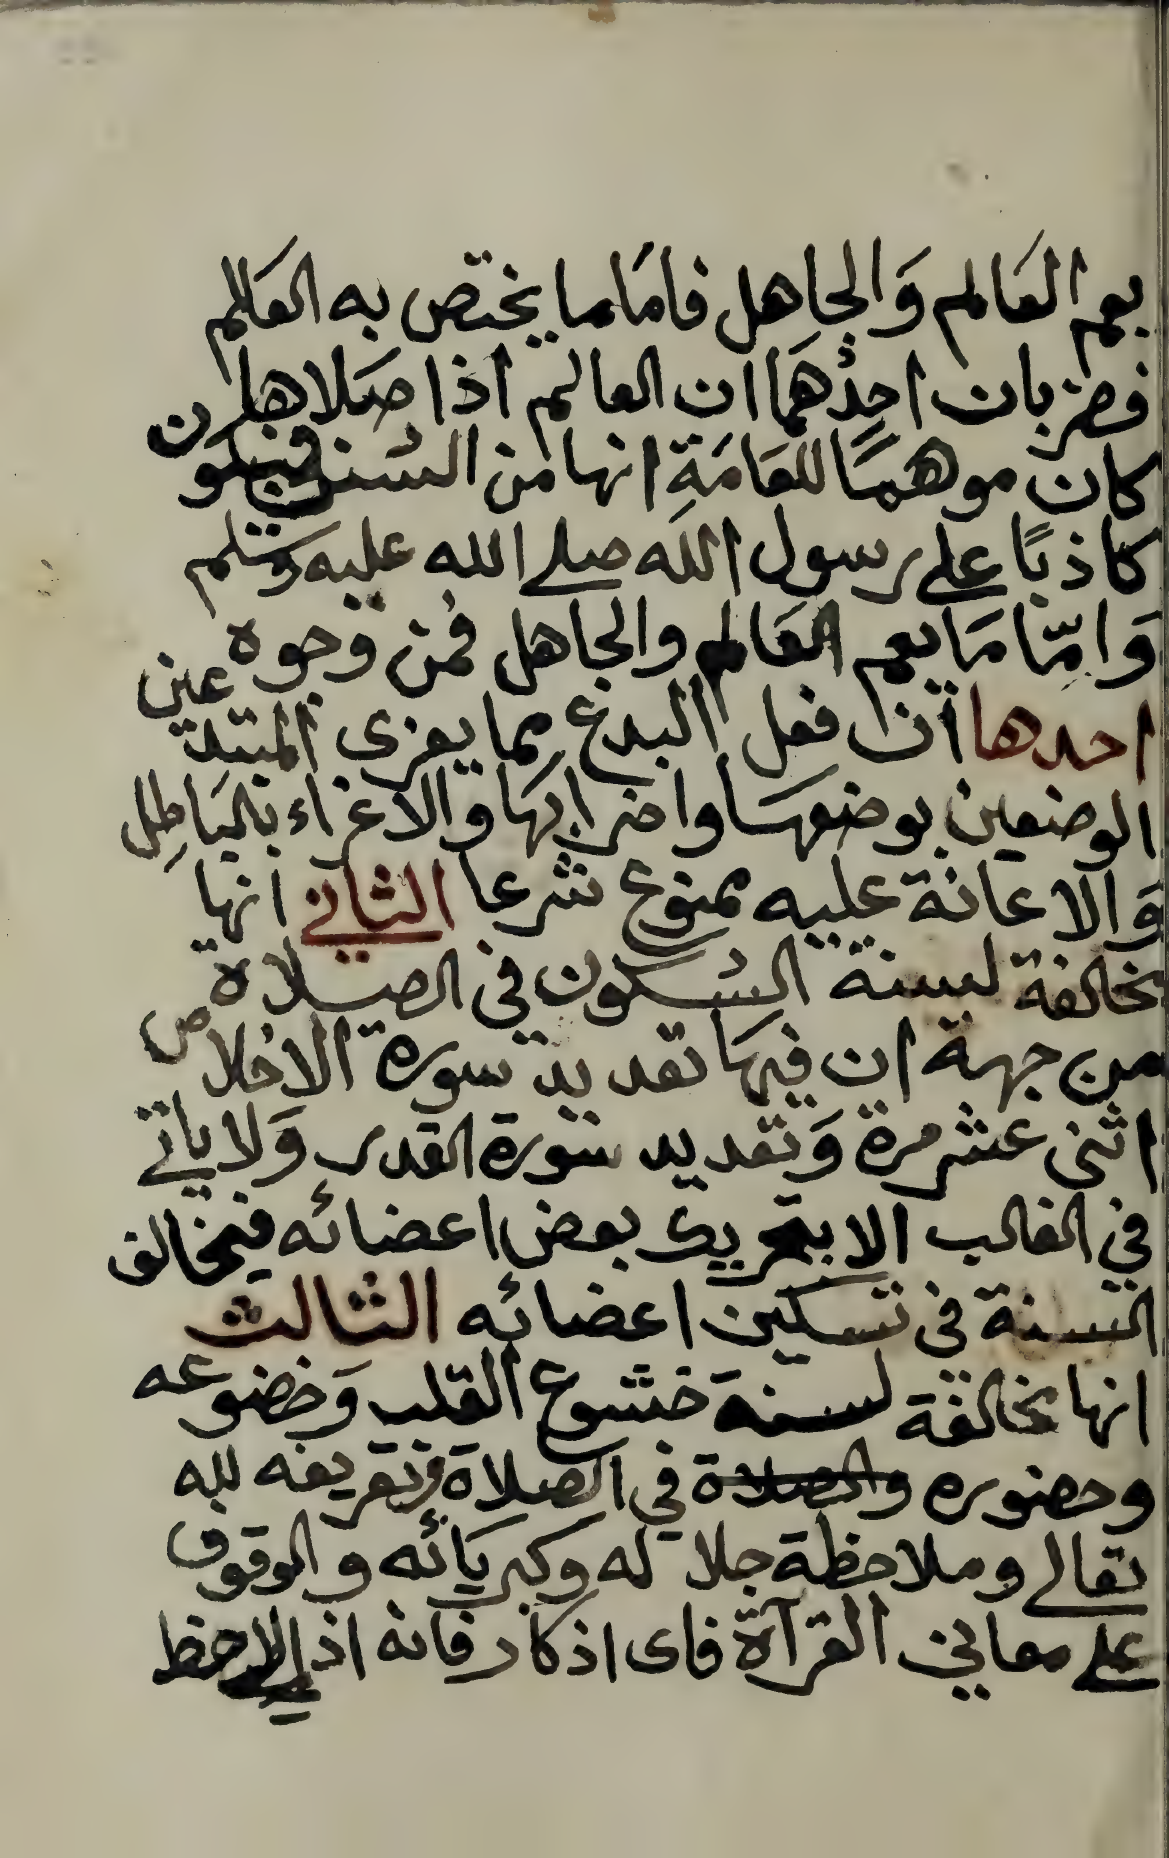 يعم العَالم وَالجاهل فامَا ما يختص به العَالم
فضربان احدْهمَا ان العالم اذا صَلاها
كان موهمًا للعَامَةِ انها من السُنن فيكون
كاذبًا على رسول الله صلى الله عليه وسلم
وَامّا مَا يعم العَالم والجاهل فمن وجوه
احدها أن فعل البدع مما يغرى المبتدعين
الوضعين بوضعهَا واضرابهَا والاغراء بالبَاطِل
وَالاعانة عليه ممنوع شرعا الثاني انها
مخالفة لسنة السُكون في الصلاة
من جهة ان فيهَا تعديد سورة الاخلاص
اثنى عشر مرة وَتعديد سورة القدر وَلا ياتي
في الغالب الا بتحريك بعض اعضائه فيخالف
السنة في تسكين اعضائه الثالث
انها مخالفة لسنة خشوع القلب وَخضوعه
وحضوره والصلاة في الصلاة وتفريغه لله
تعالى وملاحظة جلاله وكبريَائه والوقوف
على معاني القرآة فاى اذكار فانه اذا لاحظ